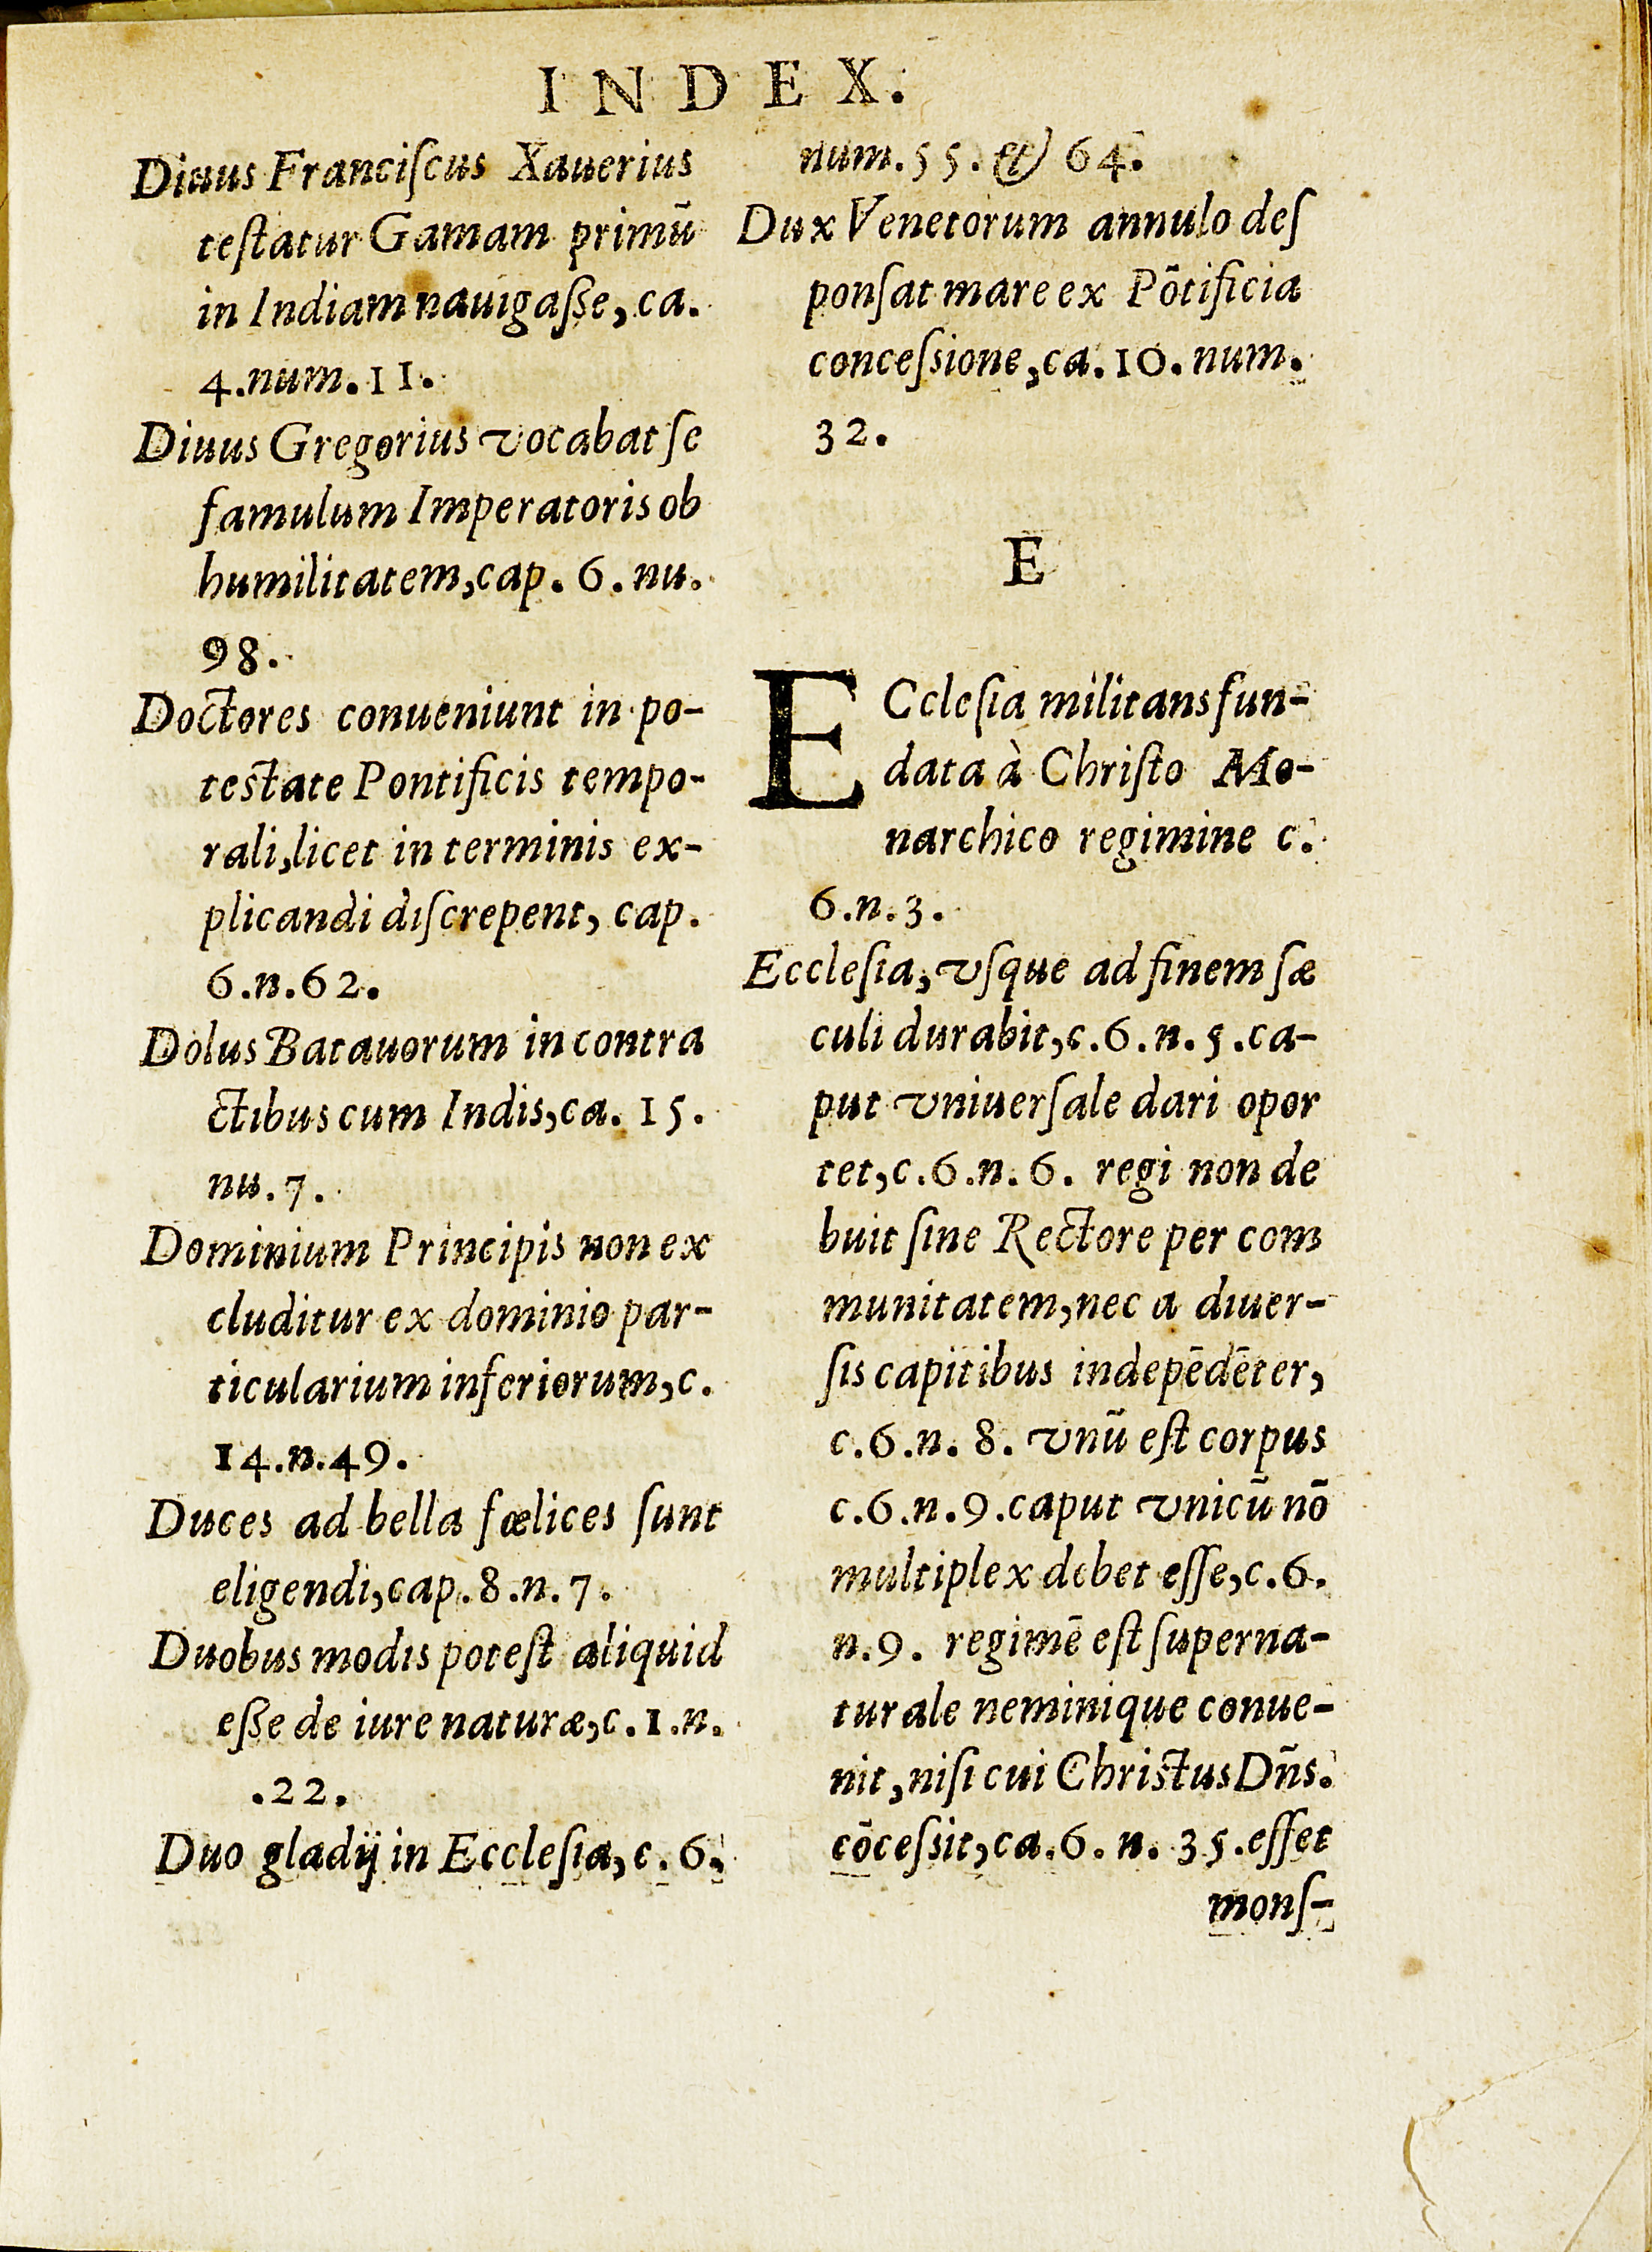 INDEX.
Diuus Franciſcus Xauerius
teſtatur Gamam primū
in Indiam nauigaſse, ca.
4.num.11.
Diuus Gregorius vocabat ſe
famulum Imperatoris ob
humilitatem,cap. 6. nu.
98.
Doctores conueniunt in po-
testate Pontificis tempo-
rali,licet in terminis ex-
plicandi diſcrepent, cap.
6.n.62.
Dolus Batauorum in contra
ctibus cum Indis,ca. 15.
nu.7.
Dominium Principis non ex
cluditur ex dominio par-
ticularium inferiorum,c.
14.n.49.
Duces ad bella fœlices ſunt
eligendi,cap.8.n.7.
Duobus modis poteſt aliquid
eſse de iure naturæ,c.1.n.
.22.
Duo gladij in Eccleſia,c.6.
num.55. & 64.
Dux Venetorum annulo deſ
ponſat mare ex Pōtificia
conceſsione,ca.10.num.
32.
E
ECcleſia militans fun-
data à Chriſto Mo-
narchico regimine c.
6.n.3.
Eccleſia, vſque ad finem ſæ
culi durabit,c.6.n.5.ca-
put vniuerſale dari opor
tet,c.6.n.6. regi non de
buit ſine Rectore per com
munitatem,nec a diuer-
ſis capitibus indepēdēter,
c.6.n.8. vnū eſt corpus
c.6.n.9.caput vnicū nō
multiplex debet eſſe,c.6.
n.9. regimē eſt ſuperna-
turale neminique conue-
nit,niſi cui Christus Dñs.
cōceſsit,ca.6. n. 35.eſſet
monſ-